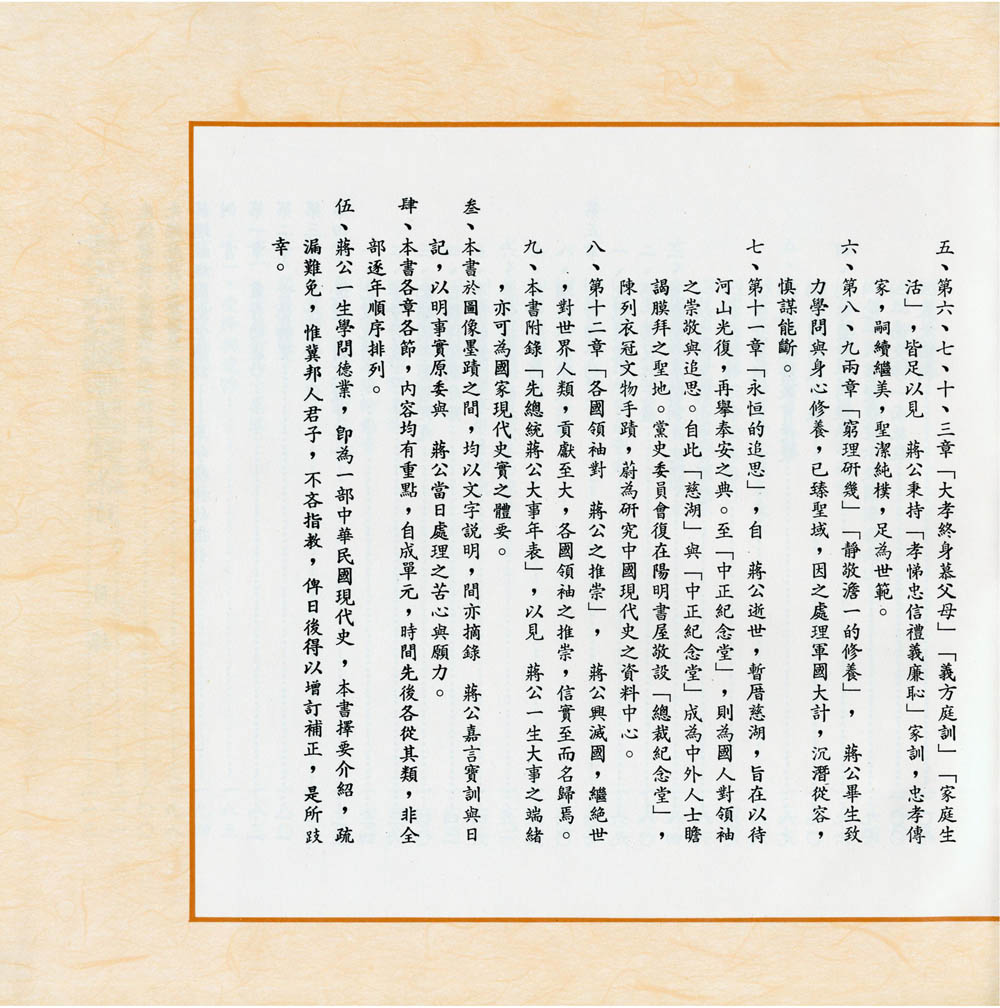 五、第六、七、十、三章「大孝終身慕父母」「義方庭訓」「家庭生
活」，皆足以見　蔣公秉持「孝悌忠信禮義廉恥」家訓，忠孝傳
家，嗣續繼美，聖潔純樸，足為世範。
六、第八、九兩章「窮理研幾」「靜敬澹一的修養」，　蔣公畢生致
力學問與身心修養，已臻聖域，因之處理軍國大計，沉潛從容，
慎謀能斷。
七、第十一章「永恒的追思」，自　蔣公逝世，暫厝慈湖，旨在以待
河山光復，再舉奉安之典。至「中正紀念堂」，則為國人對領袖
之崇敬與追思。自此「慈湖」與「中正紀念堂」成為中外人士瞻
謁膜拜之聖地。黨史委員會復在陽明書屋敬設「總裁紀念堂」，
陳列衣冠文物手蹟，蔚為研究中國現代史之資料中心。
八、第十二章「各國領袖對　蔣公之推崇」，　蔣公興滅國，繼絕世
，對世界人類，貢獻至大，各國領袖之推崇，信實至而名歸焉。
九、本書附錄「先總統蔣公大事年表」，以見　蔣公一生大事之端緒
，亦可為國家現代史實之體要。
叁、本書於圖像墨蹟之間，均以文字說明，間亦摘錄　蔣公嘉言寶訓與日
記，以明事實原委與　蔣公當日處理之苦心與願力。
肆、本書各章各節，內容均有重點，自成單元，時間先後各從其類，非全
部逐年順序排列。
伍、蔣公一生學問德業，卽為一部中華民國現代史，本書擇要介紹，疏
漏難免，惟冀邦人君子，不吝指教，俾日後得以增訂補正，是所跂
幸。